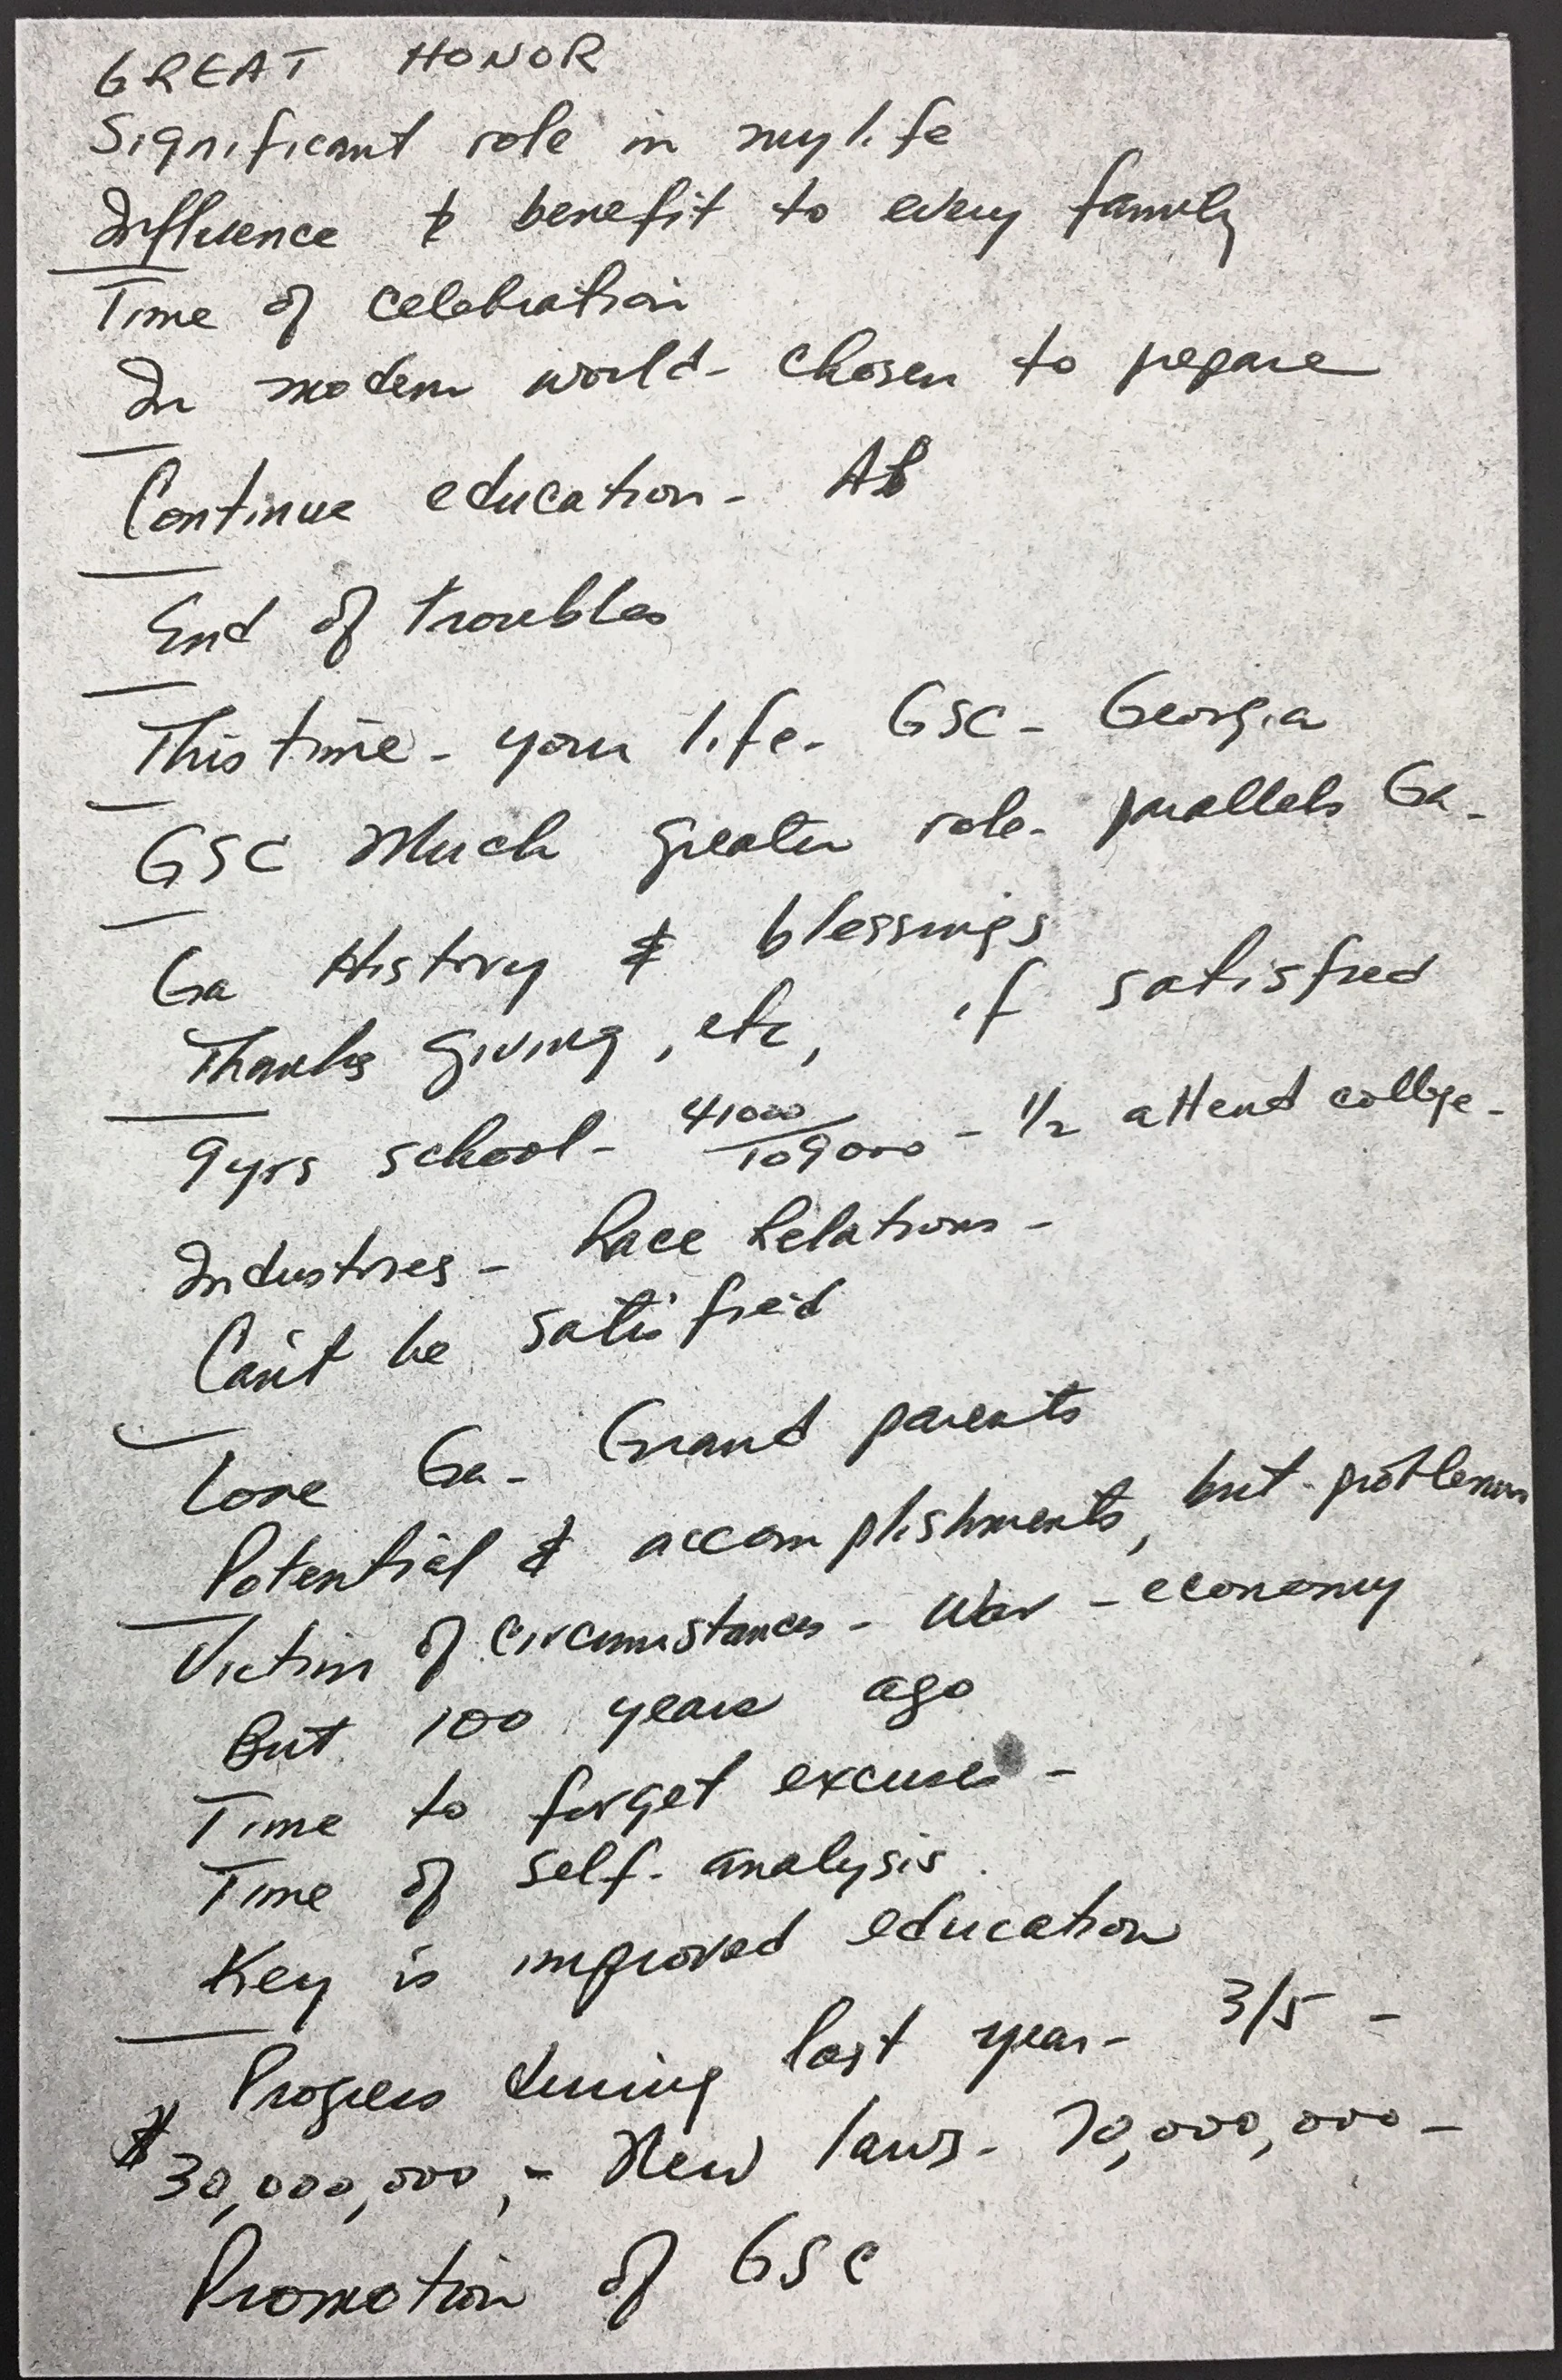 GREAT HONOR
Significant role in my life
Influence & benefit to every family
Time of celebration
In modern world - chosen to prepare
Continue education - AB
End of troubles
This time - your life - GSC - Georgia
GSC Much greater role - parallels Ga -
Ga History & blessings
Thanks giving, etc, if satisfied
9 yrs school - 41000/109000 - 1/2 attend college -
Industries - Race Relations -
Can't be satisfied
Love Ga - Grand parents
Potential & accomplishments, but - problems
Victim of circumstances - War - economy
But 100 years ago
Time to forget excuses -
Time of self - analysis.
Key is improved education
Progress during last year - 3/5 -
$30,000,000, - New laws - 70,000,000 -
Promotion of GSC